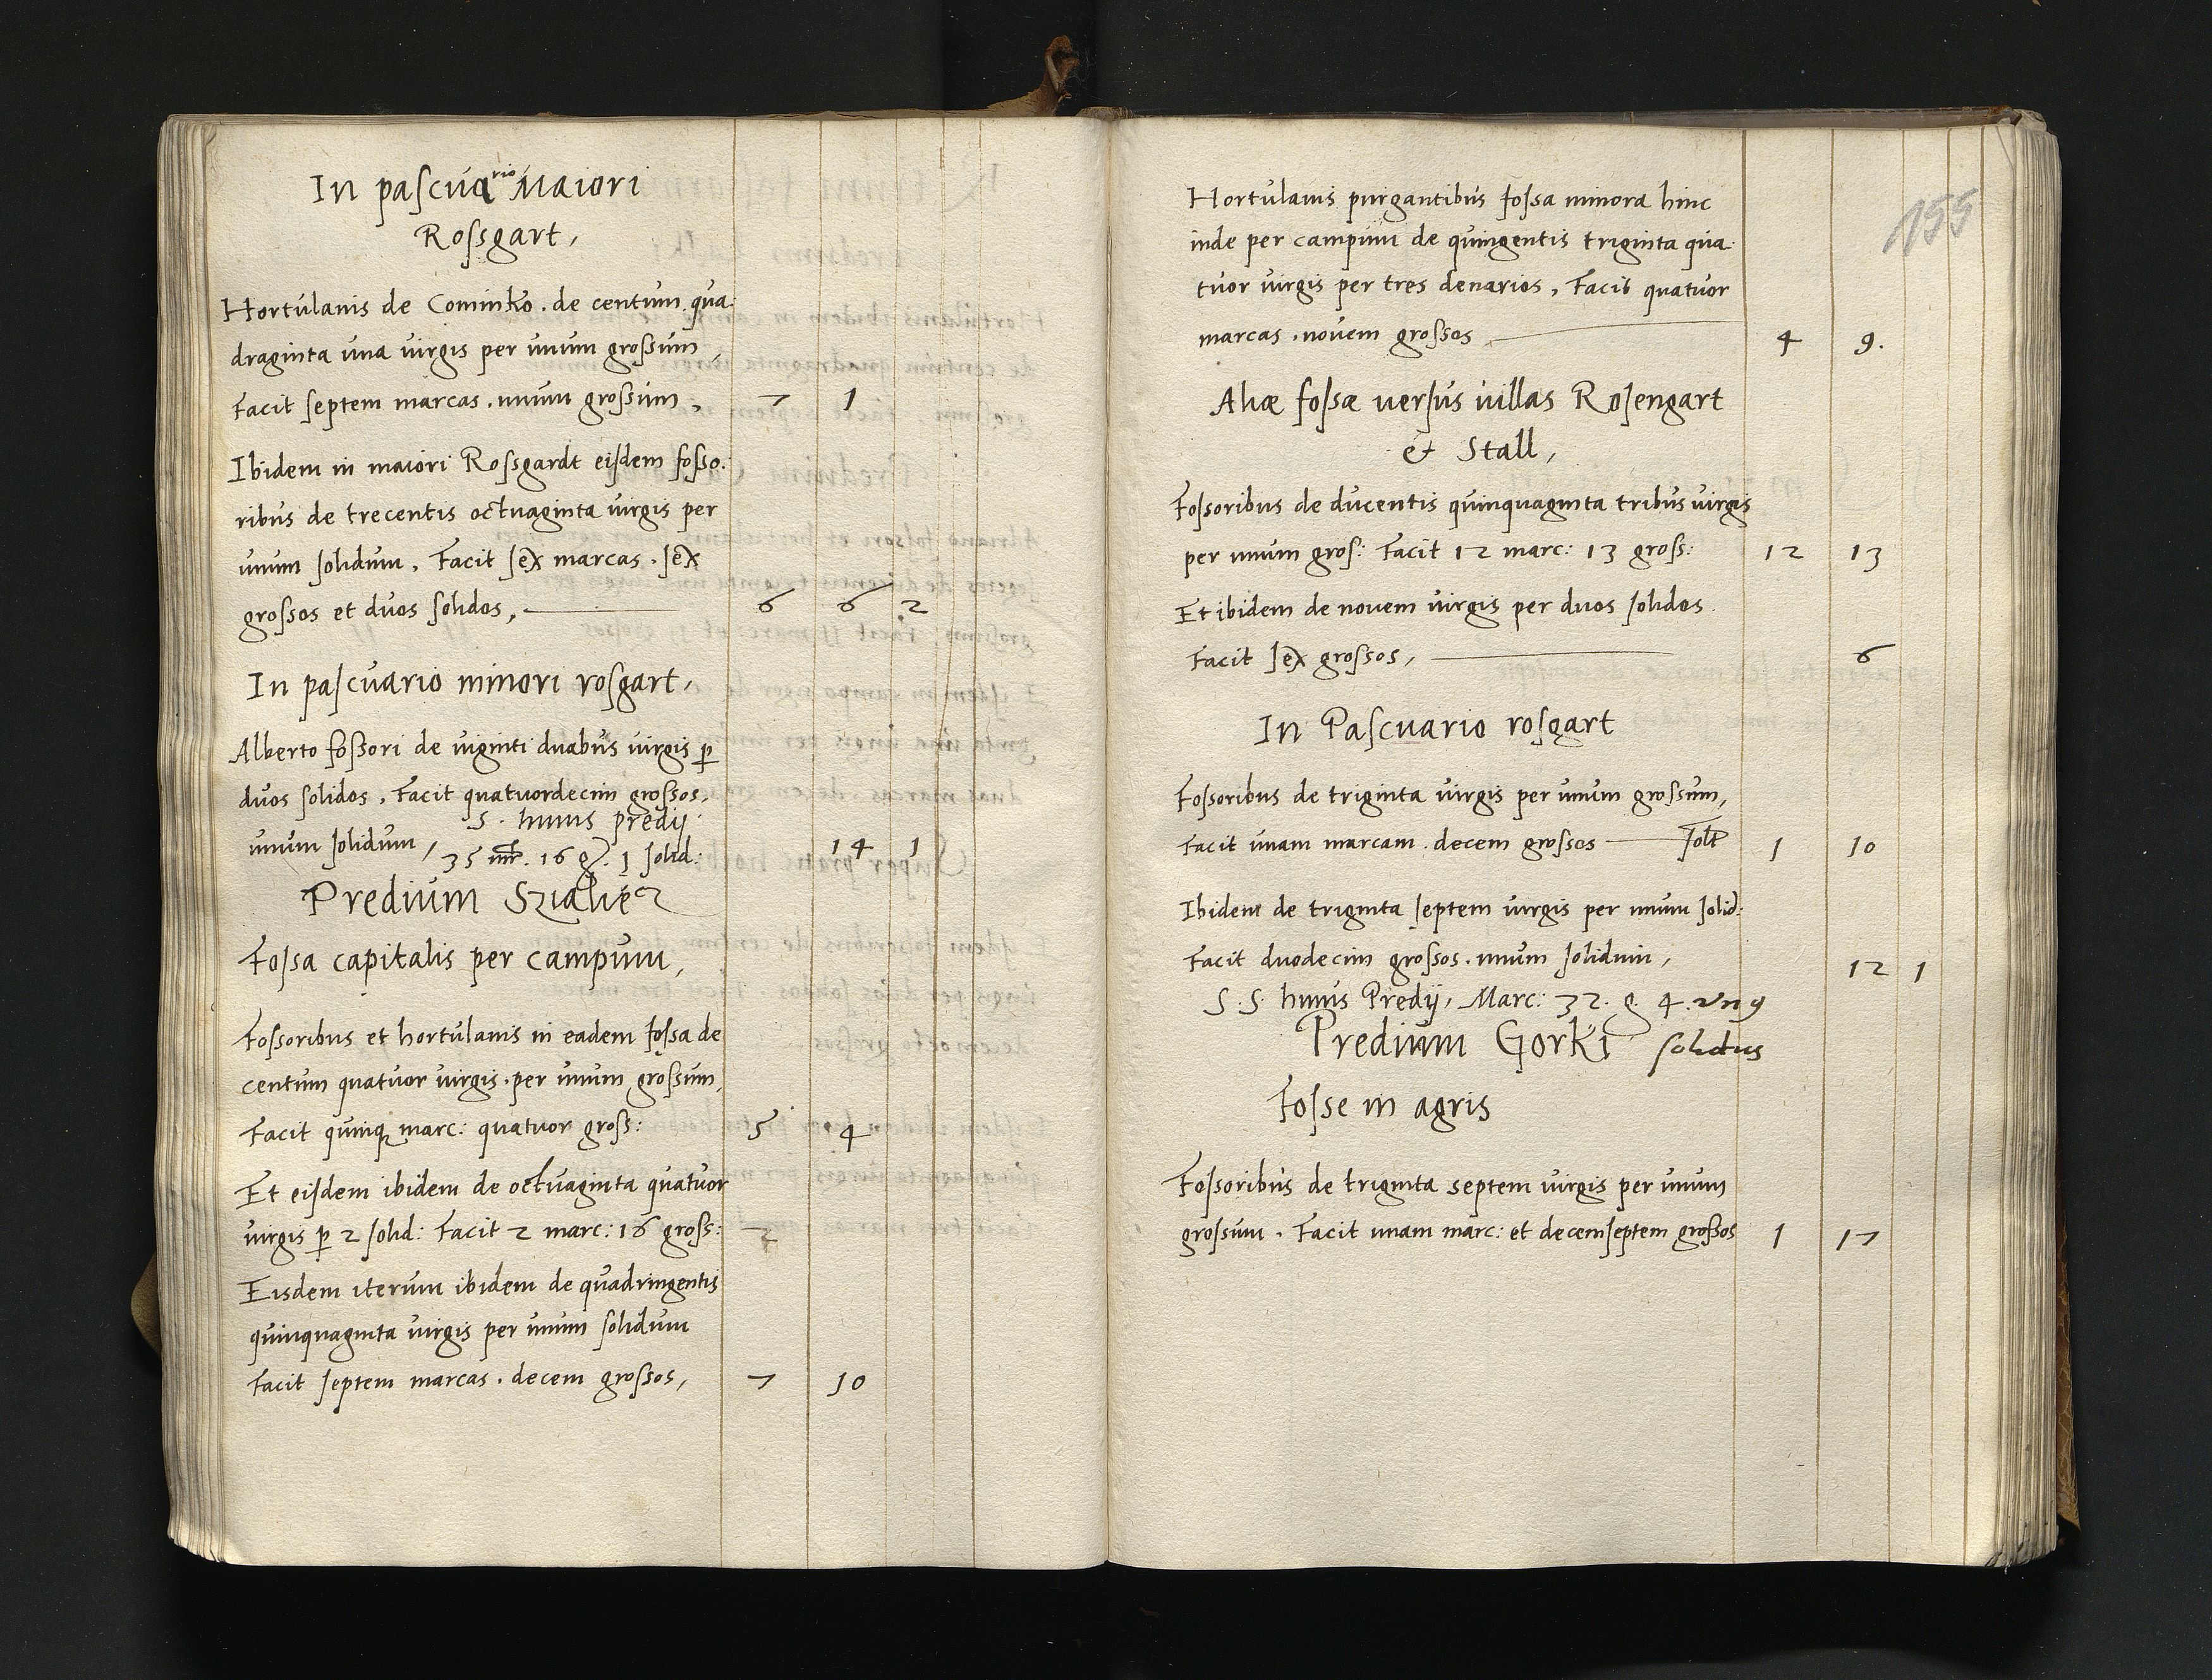 In pascuario Maiori
Rossgart,
Hortulanis de Cominko. de centum qua-
draginta una virgis per unum grossum,
Facit septem marcas. unum grossum, 7 1
Ibidem in maiori Rossgardt eisdem fosso-
ribus de trecentis octuaginta virgis per
unum solidum. Facit sex marcas. sex
grossos et duos solidos, 6 6 2
In pascuario minori rosgart,
Alberto fossori de viginti duabus virgis p
duos solidos. Facit quatuordecim grossos.
unum solidum, 14 1
S. huius predij
35 mr. 16 g. 1 solid:
Predium
Fossa capitalis per campum,
Fossoribus et hortulanis in eadem fossa de
centum quatuor virgis. per unum grossum,
Facit quinq marc: quatuor gross: 5 4
Et eisdem ibidem de octuaginta quatuor
virgis p 2 solid: Facit 2 marc: 16 gross: 2
Eisdem iterum ibidem de quadringentis
quinquaginta virgis per unum solidum
Facit septem marcas. decem grossos, 7 10
155
Hortulanis purgantibus fossa minora hinc
inde per campum de quingentis triginta qua-
tuor virgis per tres denarios, Facit quatuor
marcas. novem grossos 4 9.
Aliæ fossæ versus villas Rosengart
& Stall,
Fossoribus de ducentis quinquaginta tribus virgis
per unum gros: Facit 12 marc: 13 gross: 12 13
Et ibidem de novem virgis per duos solidos.
Facit sex grossos, 6
In Pascuario rosgart
Fossoribus de triginta virgis per unum grossum,
Facit unam marcam. decem grossos 1 10
Ibidem de triginta septem virgis per unum solid:
Facit duodecim grossos. unum solidum, 12 1
S. S. huius Predij, Marc: 32. g. 4. un9
solidus
Predium Gorki
Fosse in agris
Fossoribus de triginta septem virgis per unum
grossum. Facit unam marc: et decemseptem grossos 1 17